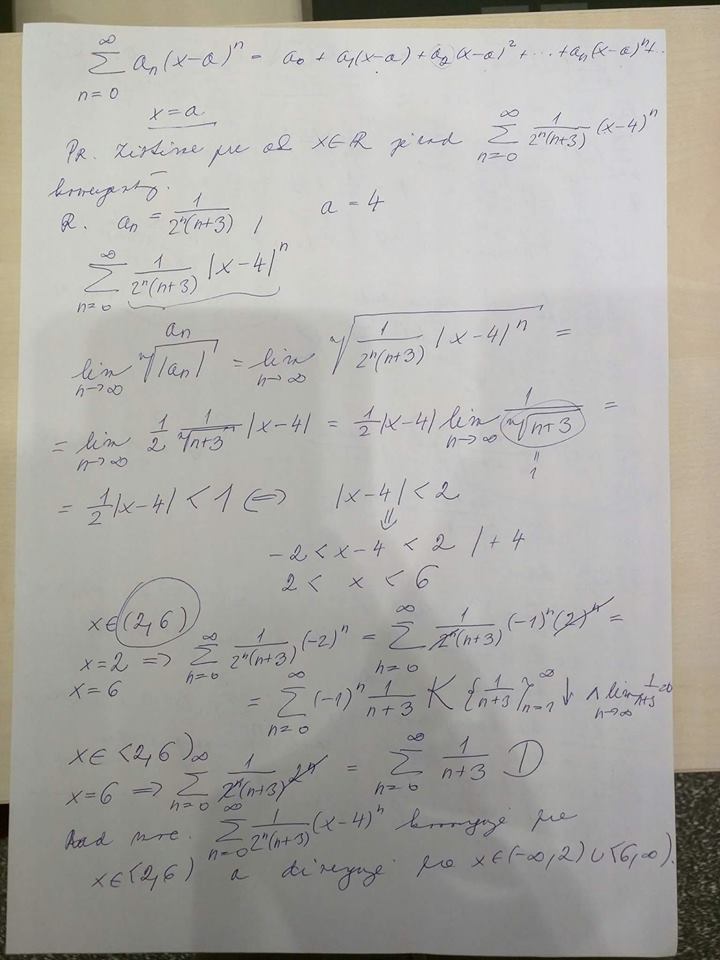 ∞∑n=0 aₙ(x-a)ⁿ = a₀ + a₁(x-a) + a₂(x-a)² + ... + aₙ(x-a)ⁿ + ..
x = a
Pr. Zistime pre x∈R je rad ∞∑n=0 1/(2ⁿ(n+3)) (x-4)ⁿ
konvergentý.
R. aₙ = 1/(2ⁿ(n+3)) , a = 4
∞∑n=0 1/(2ⁿ(n+3)) |x-4|ⁿ
aₙ
lim n→∞ ⁿ√|aₙ| = lim n→∞ ⁿ√(1/(2ⁿ(n+3)) |x-4|ⁿ) =
= lim n→∞ 1/2 1/ⁿ√(n+3) |x-4| = 1/2 |x-4| lim n→∞ 1/ⁿ√(n+3) =
= 1/2 |x-4| < 1 ⇔ |x-4| < 2
" 1
⇓
-2 < x-4 < 2 | +4
2 < x < 6
x∈(2,6)
x=2 ⇒ ∞∑n=0 1/(2ⁿ(n+3)) (-2)ⁿ = ∞∑n=0 1/(2ⁿ(n+3)) (-1)ⁿ(2)ⁿ =
x=6 = ∞∑n=0 (-1)ⁿ 1/(n+3) K {1/(n+3)}∞n=1 ↓ ∧ lim n→∞ 1/(n+3) =0
x∈<2,6)
x=6 ⇒ ∞∑n=0 1/(2ⁿ(n+3)) 2ⁿ = ∞∑n=0 1/(n+3) D
Rad ∞∑n=0 1/(2ⁿ(n+3)) (x-4)ⁿ konverguje pre
x∈<2,6) a diverguje pre x∈(-∞,2)∪<6,∞).